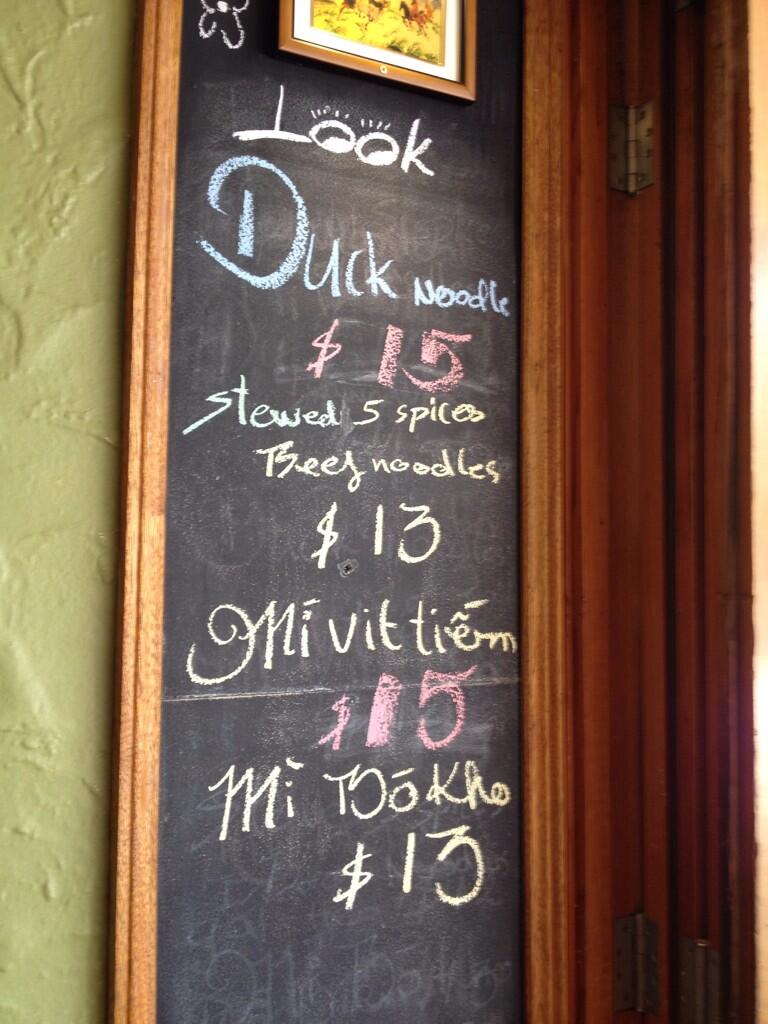 Look
Duck Noodle
$15
Stewed 5 spices
Beef noodles
$13
Mí vit tiềm
$15
Mì Bó Kho
$13